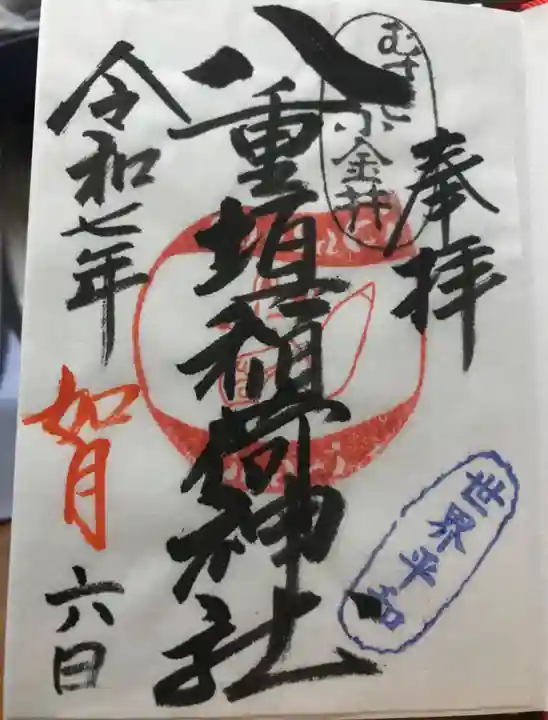 奉拝
むさし小金井
八重垣稲荷神社
令和七年
如月
六日
世界平和